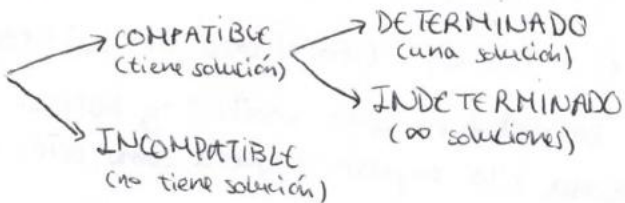 COMPATIBLE
(tiene solución)
DETERMINADO
(una solución)
INDETERMINADO
(∞ soluciones)
INCOMPATIBLE
(no tiene solución)